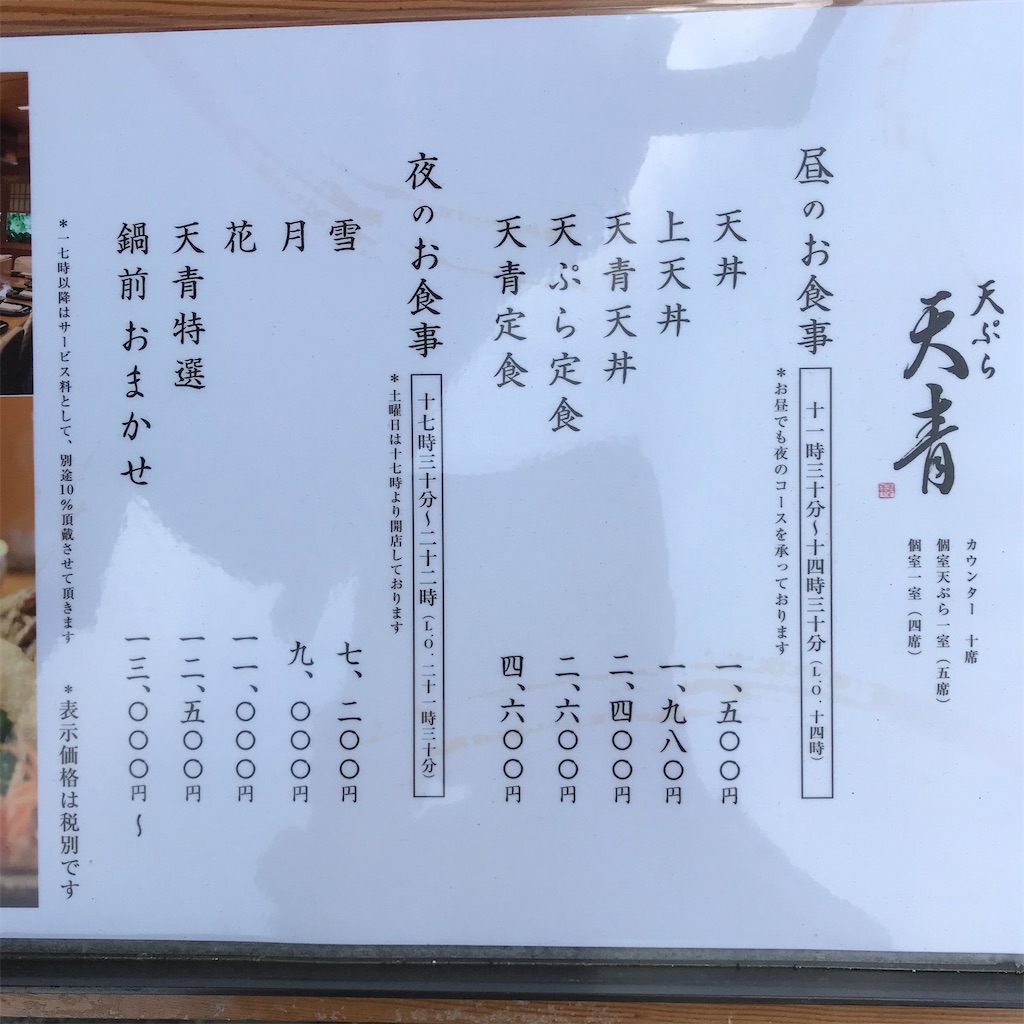 天ぷら
天青
カウンター 十席
個室天ぷら一室（五席）
個室一室（四席）
昼のお食事
十一時三十分〜十四時三十分（L.O. 十四時）
＊お昼でも夜のコースを承っております
天丼 一、五〇〇円
上天丼 一、九八〇円
天青天丼 二、四〇〇円
天ぷら定食 二、六〇〇円
天青定食 四、六〇〇円
夜のお食事
十七時三十分〜二十二時（L.O. 二十一時三十分）
＊土曜日は十七時より開店しております
雪 七、二〇〇円
月 九、〇〇〇円
花 一一、〇〇〇円
天青特選 一二、五〇〇円
鍋前おまかせ 一三、〇〇〇円〜
＊一七時以降はサービス料として、別途10%頂戴させて頂きます
＊表示価格は税別です